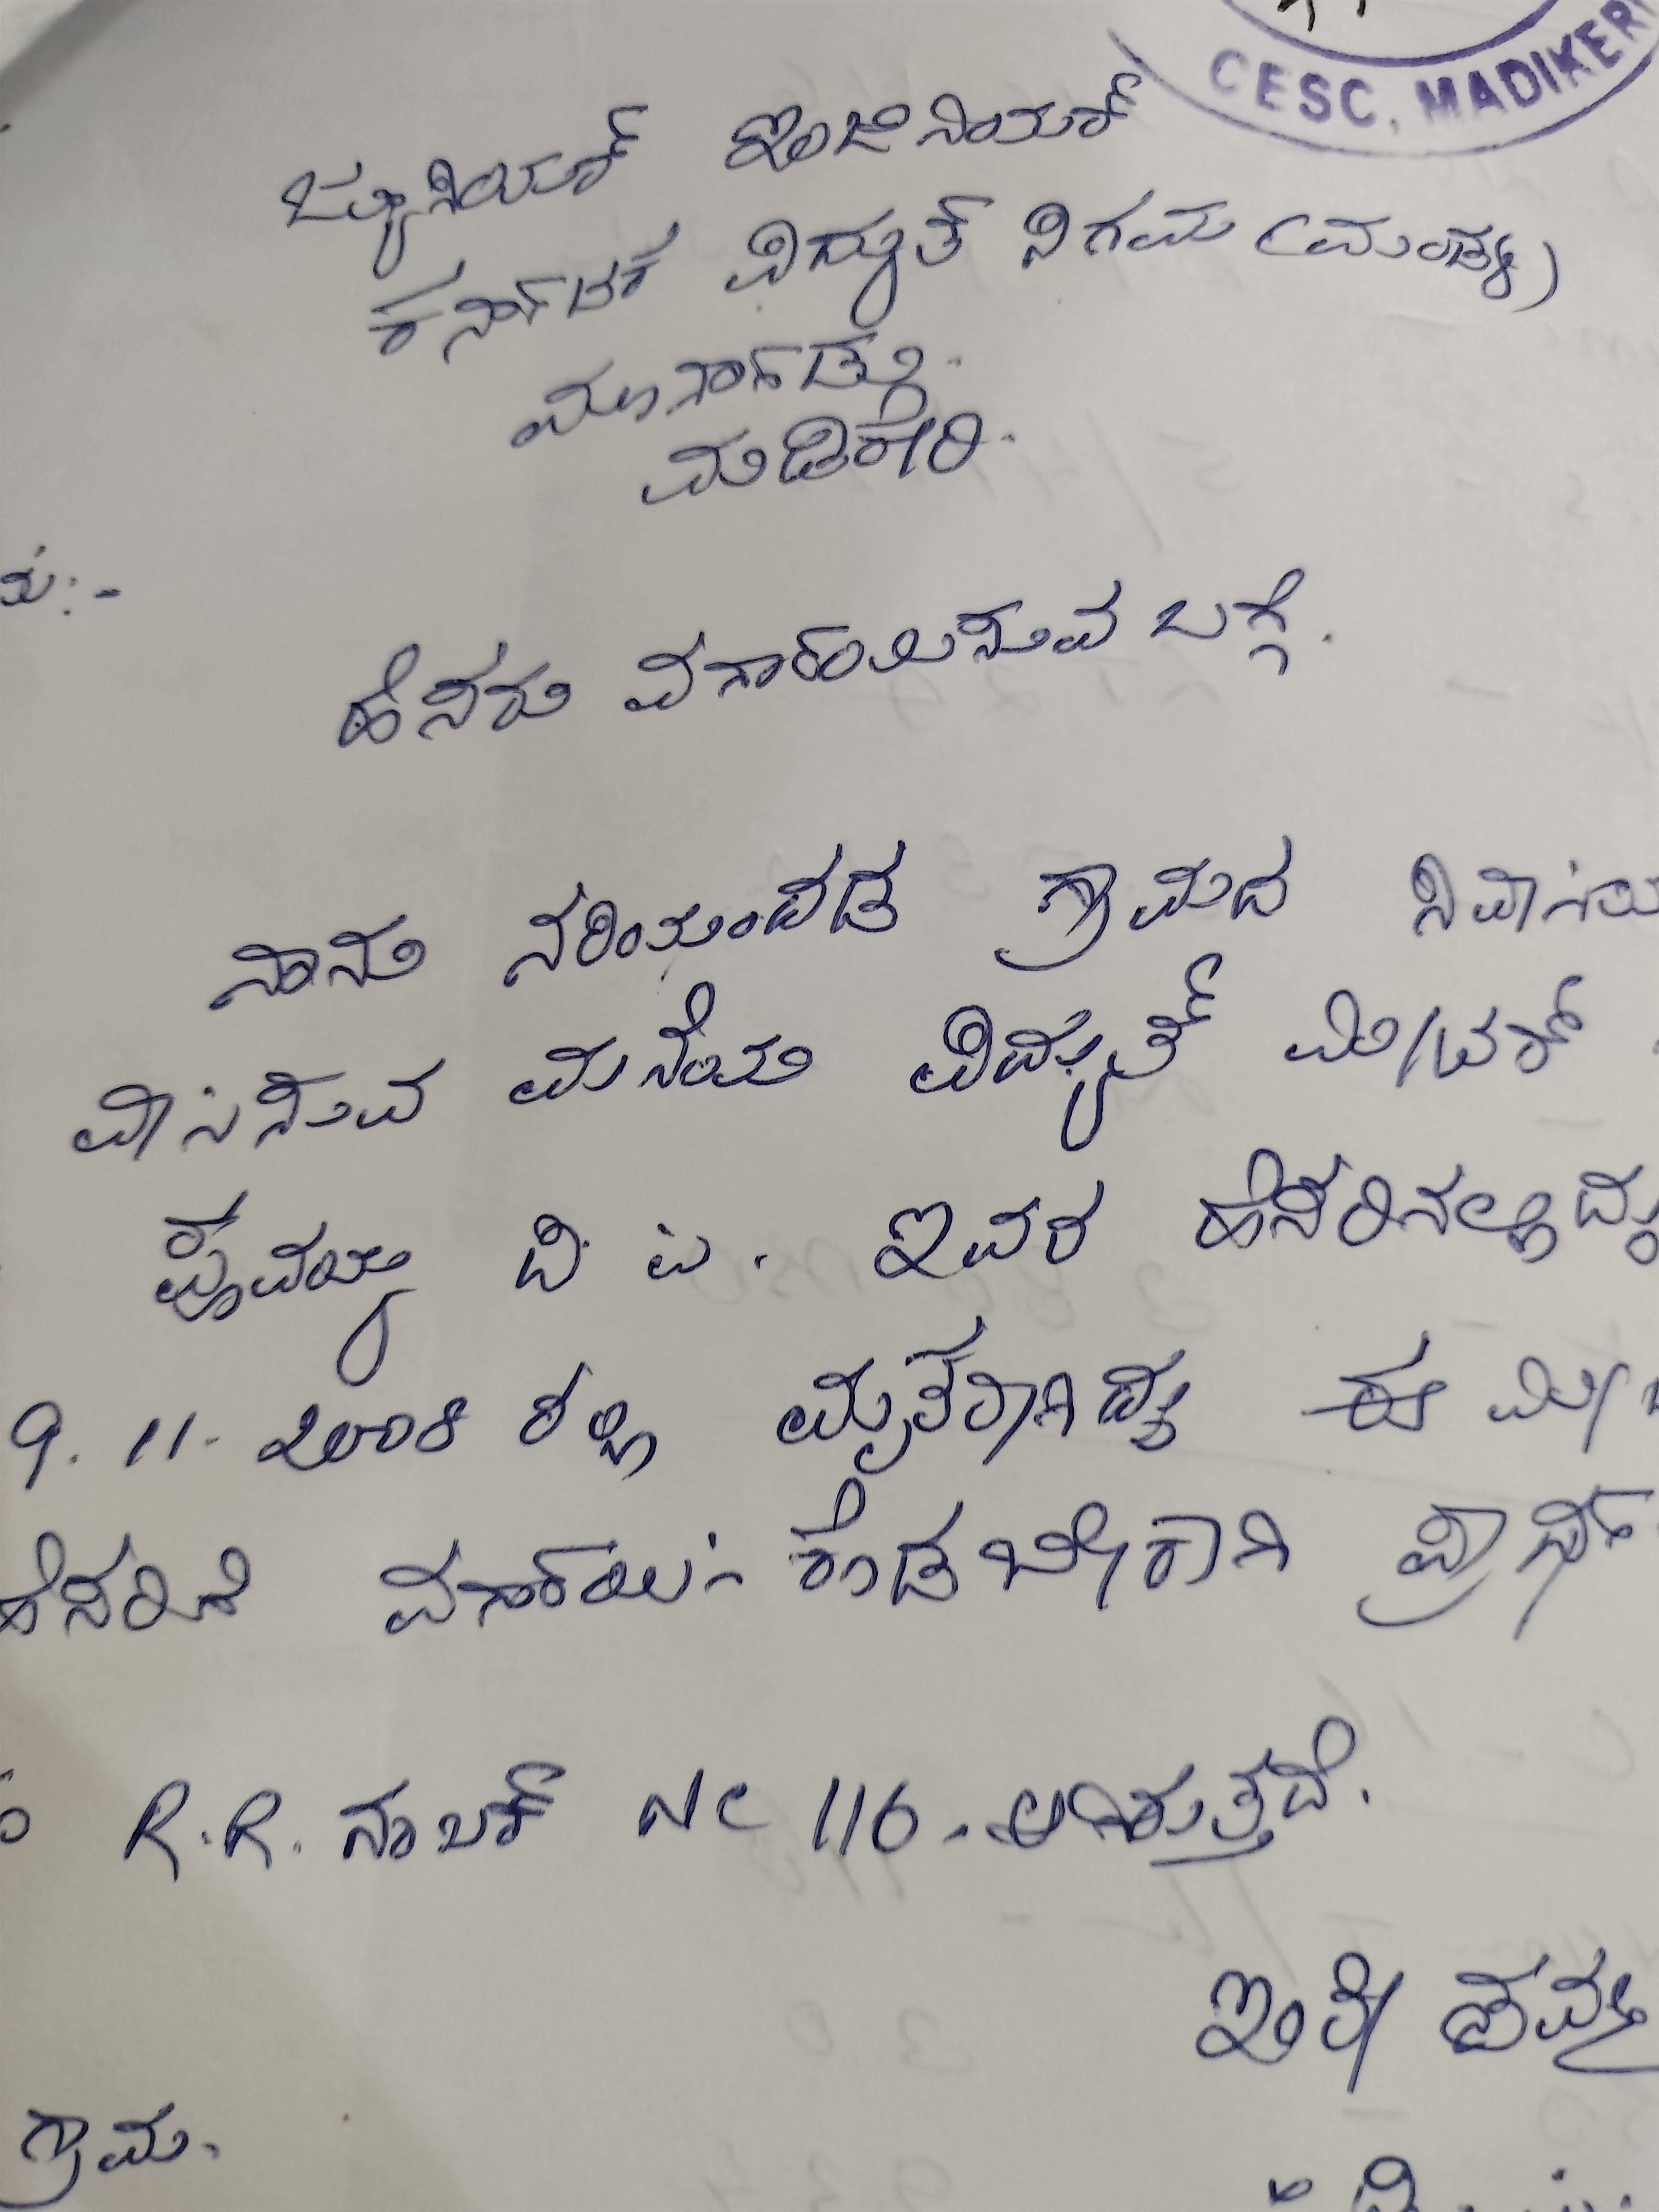 CESC, MADIKER
ಜ್ಯೂನಿಯರ್ ಇಂಜಿನಿಯರ್
ಕರ್ನಾಟಕ ವಿದ್ಯುತ್ ನಿಗಮ (ಮಂಡ್ಯ)
ಮೂರ್ನಾಡು.
ಮಡಿಕೇರಿ.
ಹೆಸರು ವರ್ಗಾಯಿಸುವ ಬಗ್ಗೆ.
ನಾನು ನರಿಯಂದಡ ಗ್ರಾಮದ
ವಾಸಿಸುವ ಮನೆಯ ವಿದ್ಯುತ್ ಮೀಟರ್
ಇವರ ಹೆಸರಿನಲ್ಲಿದ್ದು
9. 11. 2008 ರಲ್ಲಿ ಮೃತರಾಗಿದ್ದು ಈ
ಹೆಸರಿಗೆ ವರ್ಗಾಯಿಸಿ ಕೊಡಬೇಕಾಗಿ
R.R. ನಂಬರ್ 116. ಆಗಿರುತ್ತದೆ.
ಇಂತಿ
ಗ್ರಾಮ.